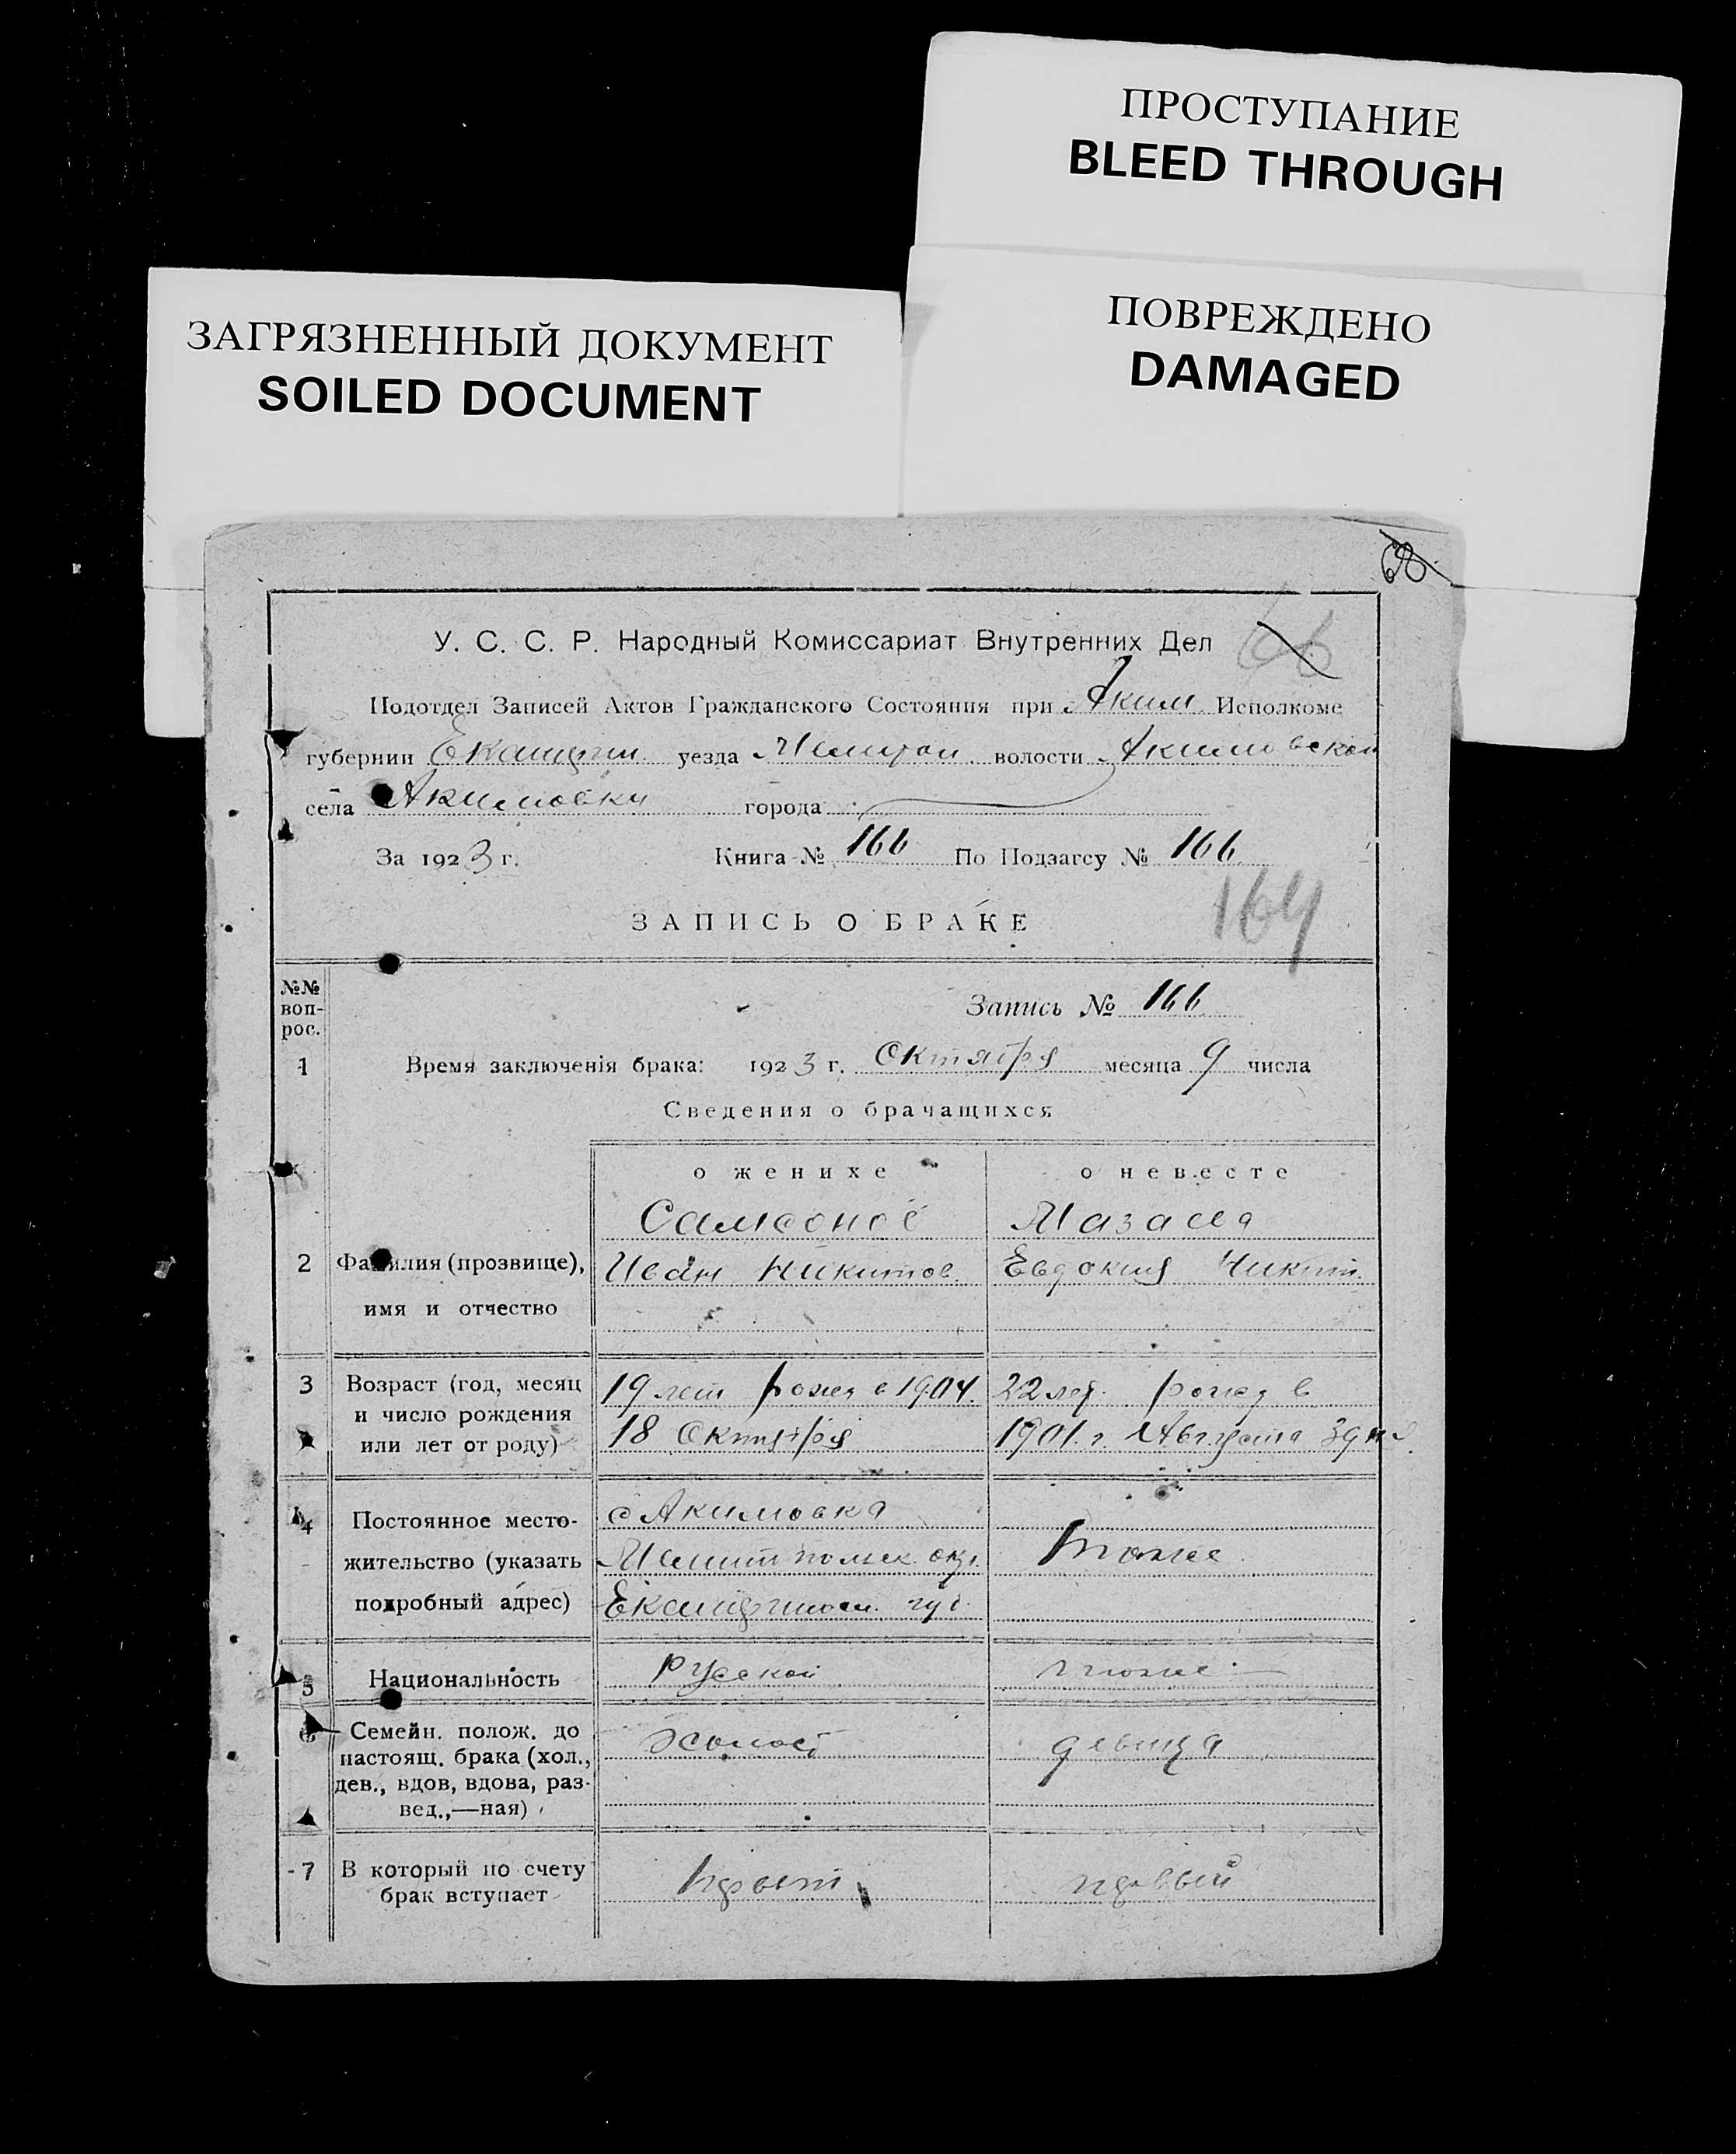 ПРОСТУПАНИЕ
BLEED THROUGH
ПОВРЕЖДЕНО
DAMAGED
ЗАГРЯЗНЕННЫЙ ДОКУМЕНТ
SOILED DOCUMENT
68
66
У. С. С. Р. Народный Комиссариат Внутренних Дел
Подотдел Записей Актов Гражданского Состояния при Аким. Исполкоме
губернии уезда волости Акимовской
села Акимовки города
За 1923 г. Книга № 166 По Подзагсу № 166
164
ЗАПИСЬ О БРАКЕ
№№ воп-рос.
Запись № 166
1 Время заключенія брака: 1923 г. Октября месяца 9 числа
Сведения о брачащихся
о женихе о невесте
Самсонов
2 Фамилия (прозвище), Иван Никитов. Евдокия Никит.
имя и отчество
3 Возраст (год, месяц 19 лет рожд в 1904. 22 лет. рожд в
и число рождения 18 Октября 1901. г. Августа
или лет от роду)
4 Постоянное место- с Акимовка
жительство (указать тоже
подробный адрес) губ.
5 Национальность Русской тоже
6 Семейн. полож. до холост девица
настоящ. брака (хол.,
дев., вдов, вдова, раз-
вед.,—ная)
7 В который по счету первый
брак вступает